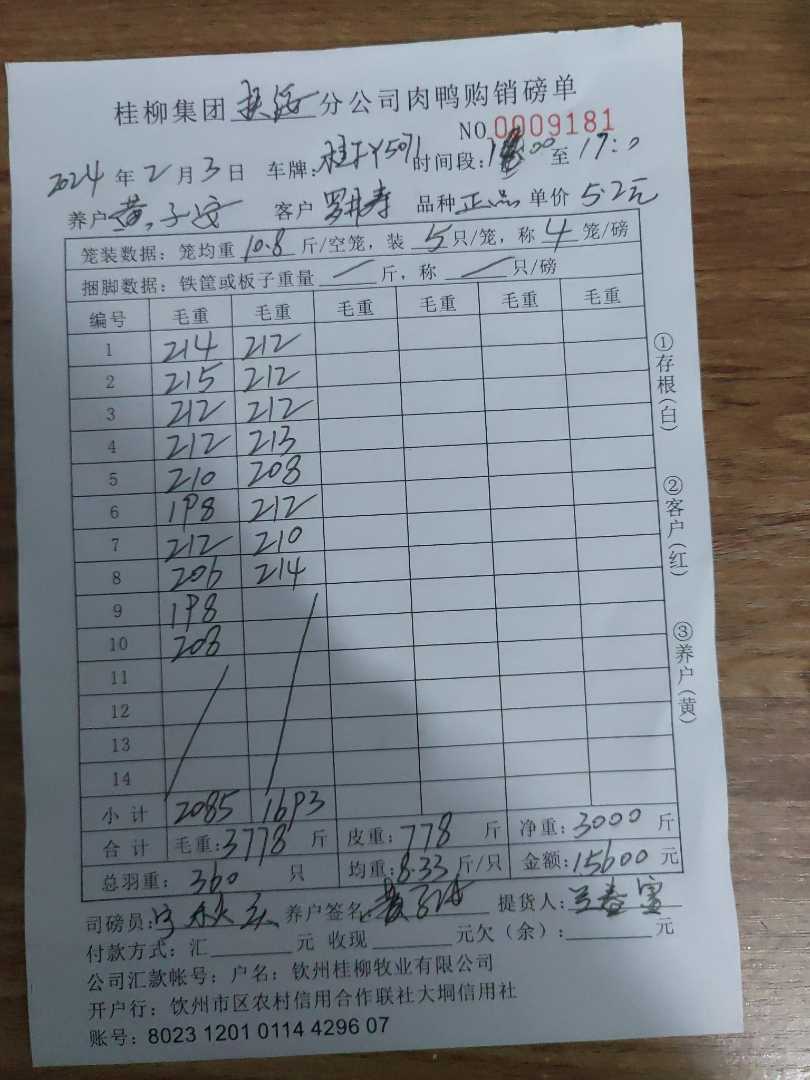 桂柳集团 分公司肉鸭购销磅单
NO 0009181
2024年2月3日 车牌:桂 Y5071 时间段: :00至17:0
养户 黄子安 客户 罗 寿 品种 正品 单价 5.2元
笼装数据：笼均重 10.8 斤/空笼，装 5 只/笼，称 4 笼/磅
捆脚数据：铁筐或板子重量 / 斤，称 / 只/磅
编号 毛重 毛重 毛重 毛重 毛重 毛重
1 214 212
2 215 212
3 212 212
4 212 213
5 210 208
6 198 212
7 212 210
8 206 214
9 198
10 208
11
12
13
14
小计 2085 1693
合计 毛重:3778斤 皮重:778斤 净重:3000斤
总羽重: 360 只 均重:8.33斤/只 金额:15600元
司磅员: 养户签名: 提货人:
付款方式：汇 元 收现 元欠（余）: 元
公司汇款帐号：户名：钦州桂柳牧业有限公司
开户行：钦州市区农村信用合作联社大垌信用社
账号：8023 1201 0114 4296 07
①存根(白)
②客户(红)
③养户(黄)